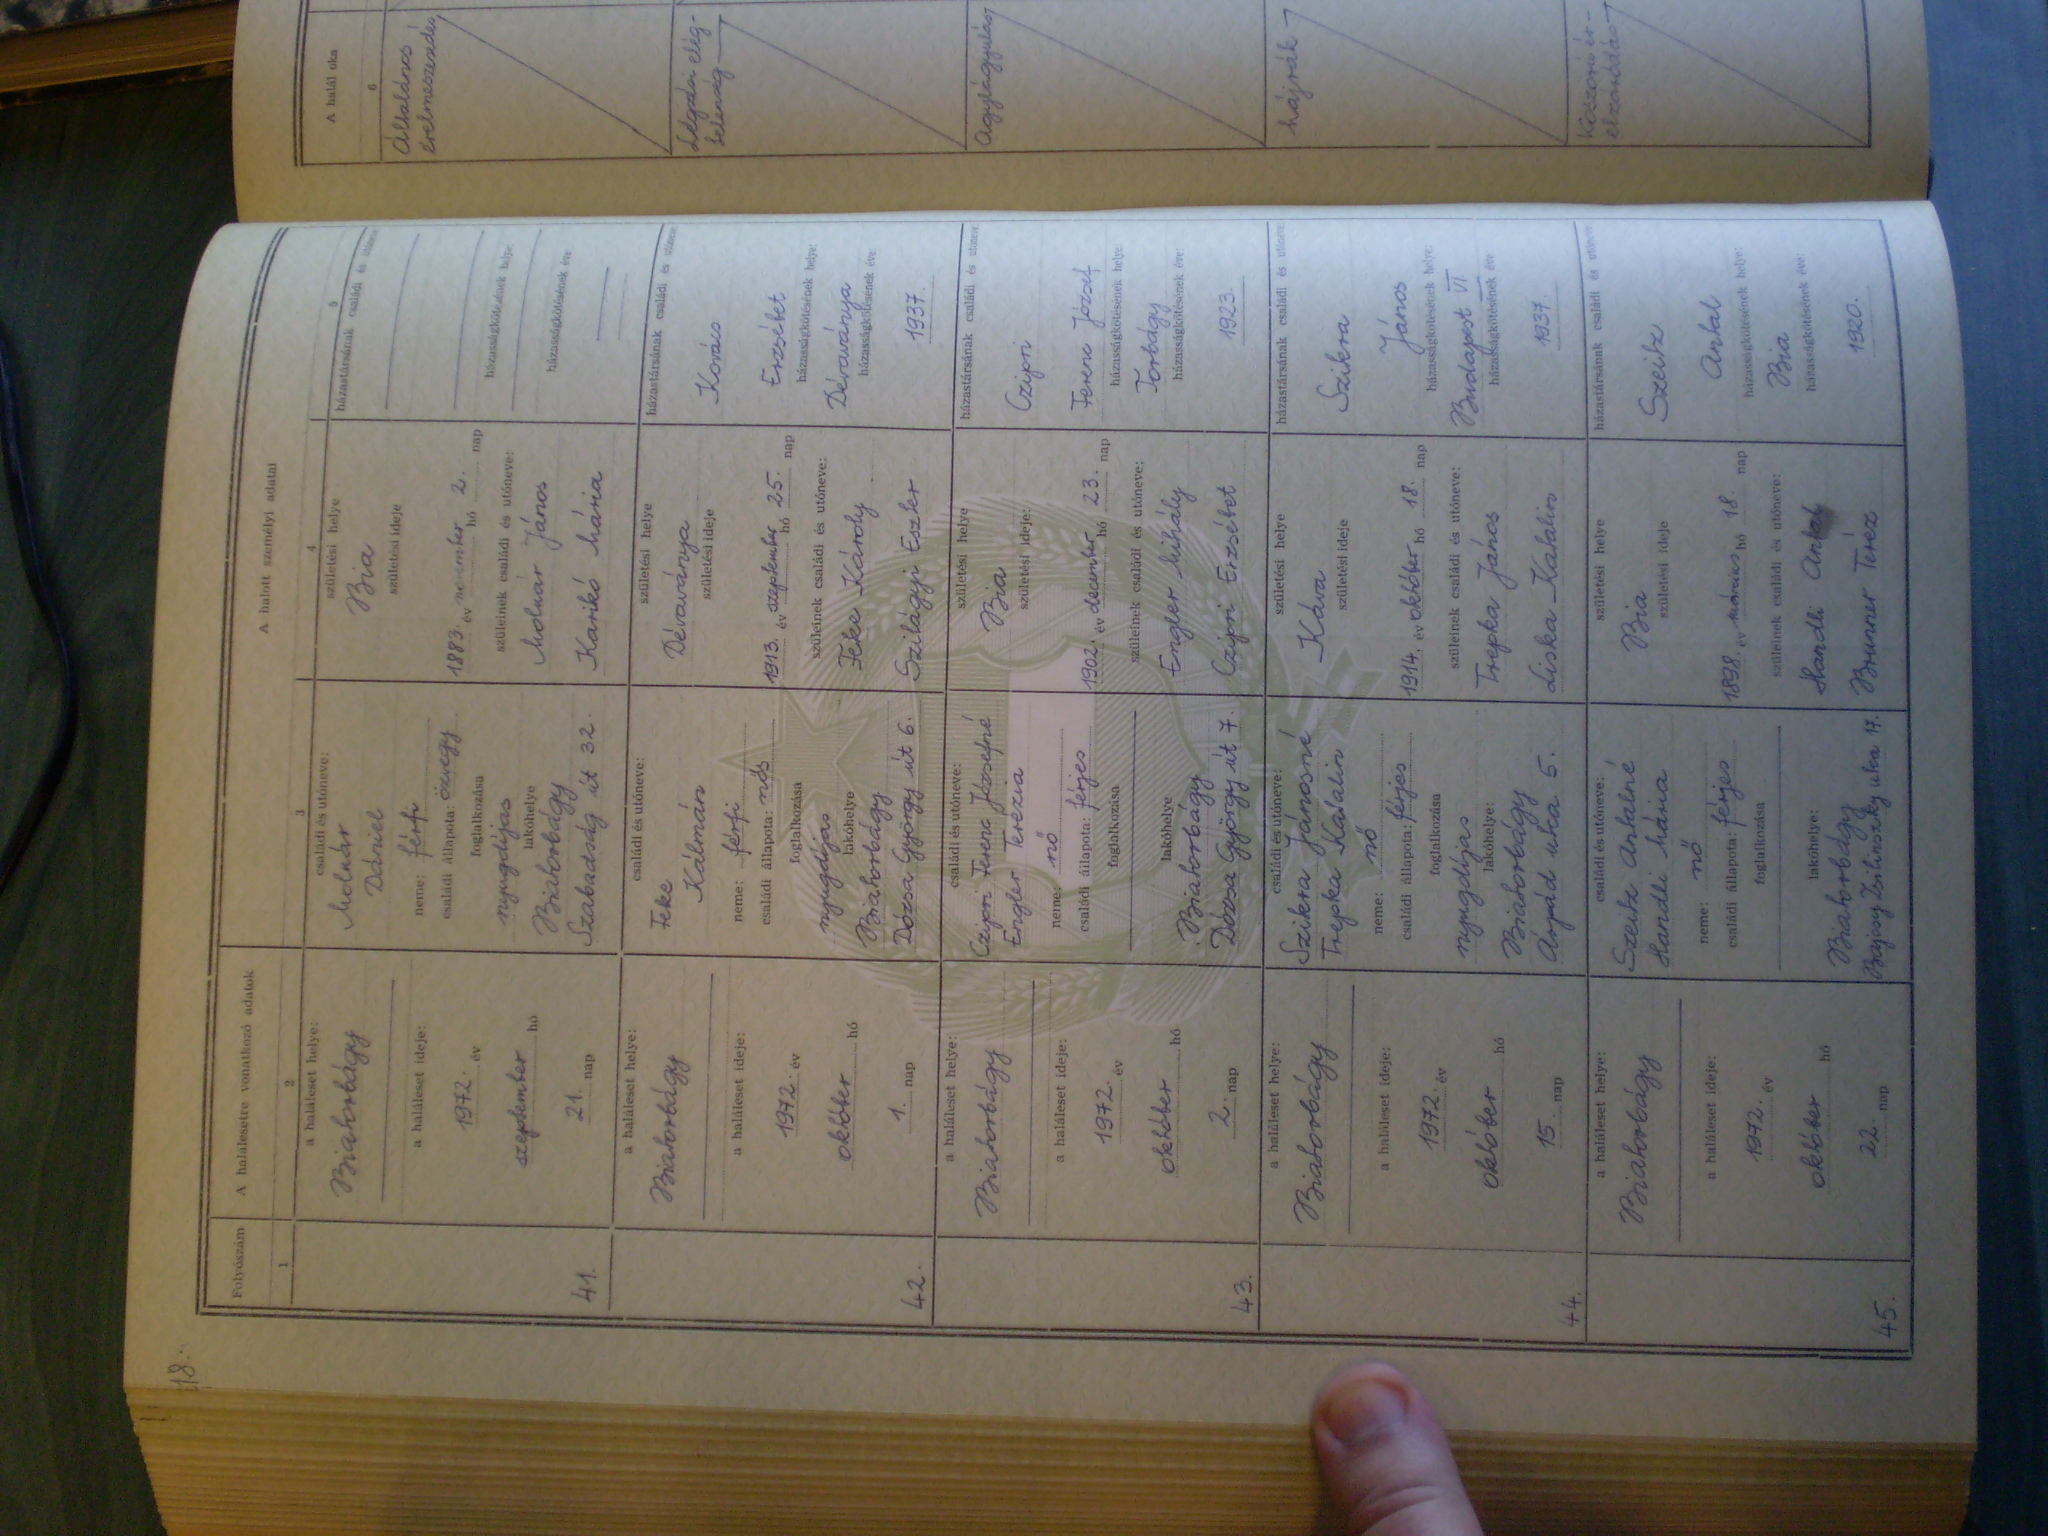 18.
A halálesetre vonatkozó adatok
A halott személyi adatai
A halál oka
Folyószám
1
2
3
4
5
6
41.
a haláleset helye:
Biatorbágy
a haláleset ideje:
1972. év
szeptember hó
21. nap
családi és utóneve:
Molnár
Dániel
neme: férfi
családi állapota: özvegy
foglalkozása
nyugdíjas
lakóhelye
Biatorbágy
Szabadság út 32.
születési helye
Bia
születési ideje
1883. év november hó 2. nap
szüleinek családi és utóneve:
Molnár János
Karikó Mária
házastársának családi és utóneve
házasságkötésének helye
házasságkötésének éve
Általános
érelmeszesedés
42.
a haláleset helye:
Biatorbágy
a haláleset ideje:
1972. év
október hó
1. nap
családi és utóneve:
Feke
Kálmán
neme: férfi
családi állapota: nős
foglalkozása
nyugdíjas
lakóhelye
Biatorbágy
Dózsa György út 6.
születési helye
Dévaványa
születési ideje
1913. év szeptember hó 25. nap
szüleinek családi és utóneve:
Feke Károly
Szilágyi Eszter
házastársának családi és utóneve
Kovács
Erzsébet
házasságkötésének helye:
Dévaványa
házasságkötésének éve:
1937.
Légzési elég-
telenség
43.
a haláleset helye:
Biatorbágy
a haláleset ideje:
1972. év
október hó
2. nap
családi és utóneve:
Czipri Ferenc Józsefné
Engler Terézia
neme: nő
családi állapota: férjes
foglalkozása
lakóhelye
Biatorbágy
Dózsa György út 7.
születési helye
Bia
születési ideje:
1902. év december hó 23. nap
szüleinek családi és utóneve:
Engler Mihály
Czipri Erzsébet
házastársának családi és utóneve
Czipri
Ferenc József
házasságkötésének helye
Torbágy
házasságkötésének éve:
1923.
Agylágyulás
44.
a haláleset helye:
Biatorbágy
a haláleset ideje:
1972. év
október hó
15. nap
családi és utóneve:
Szikra Jánosné
Trepka Katalin
neme: nő
családi állapota: férjes
foglalkozása
nyugdíjas
lakóhelye:
Biatorbágy
Árpád utca 5.
születési helye
Káva
születési ideje
1914. év október hó 18. nap
szüleinek családi és utóneve:
Trepka János
Liska Katalin
házastársának családi és utóneve
Szikra
János
házasságkötésének helye:
Budapest VI.
házasságkötésének éve
1937.
Májrák
45.
a haláleset helye:
Biatorbágy
a haláleset ideje:
1972. év
október hó
22. nap
családi és utóneve:
Szeitz Antalné
Handli Mária
neme: nő
családi állapota: férjes
foglalkozása
lakóhelye:
Biatorbágy
Bajcsy Zsilinszky utca 17.
születési helye
Bia
születési ideje
1898. év március hó 18 nap
szüleinek családi és utóneve:
Handli Antal
Brunner Teréz
házastársának családi és utóneve
Szeitz
Antal
házasságkötésének helye:
Bia
házasságkötésének éve:
1920.
Koszorúér-
elzáródás